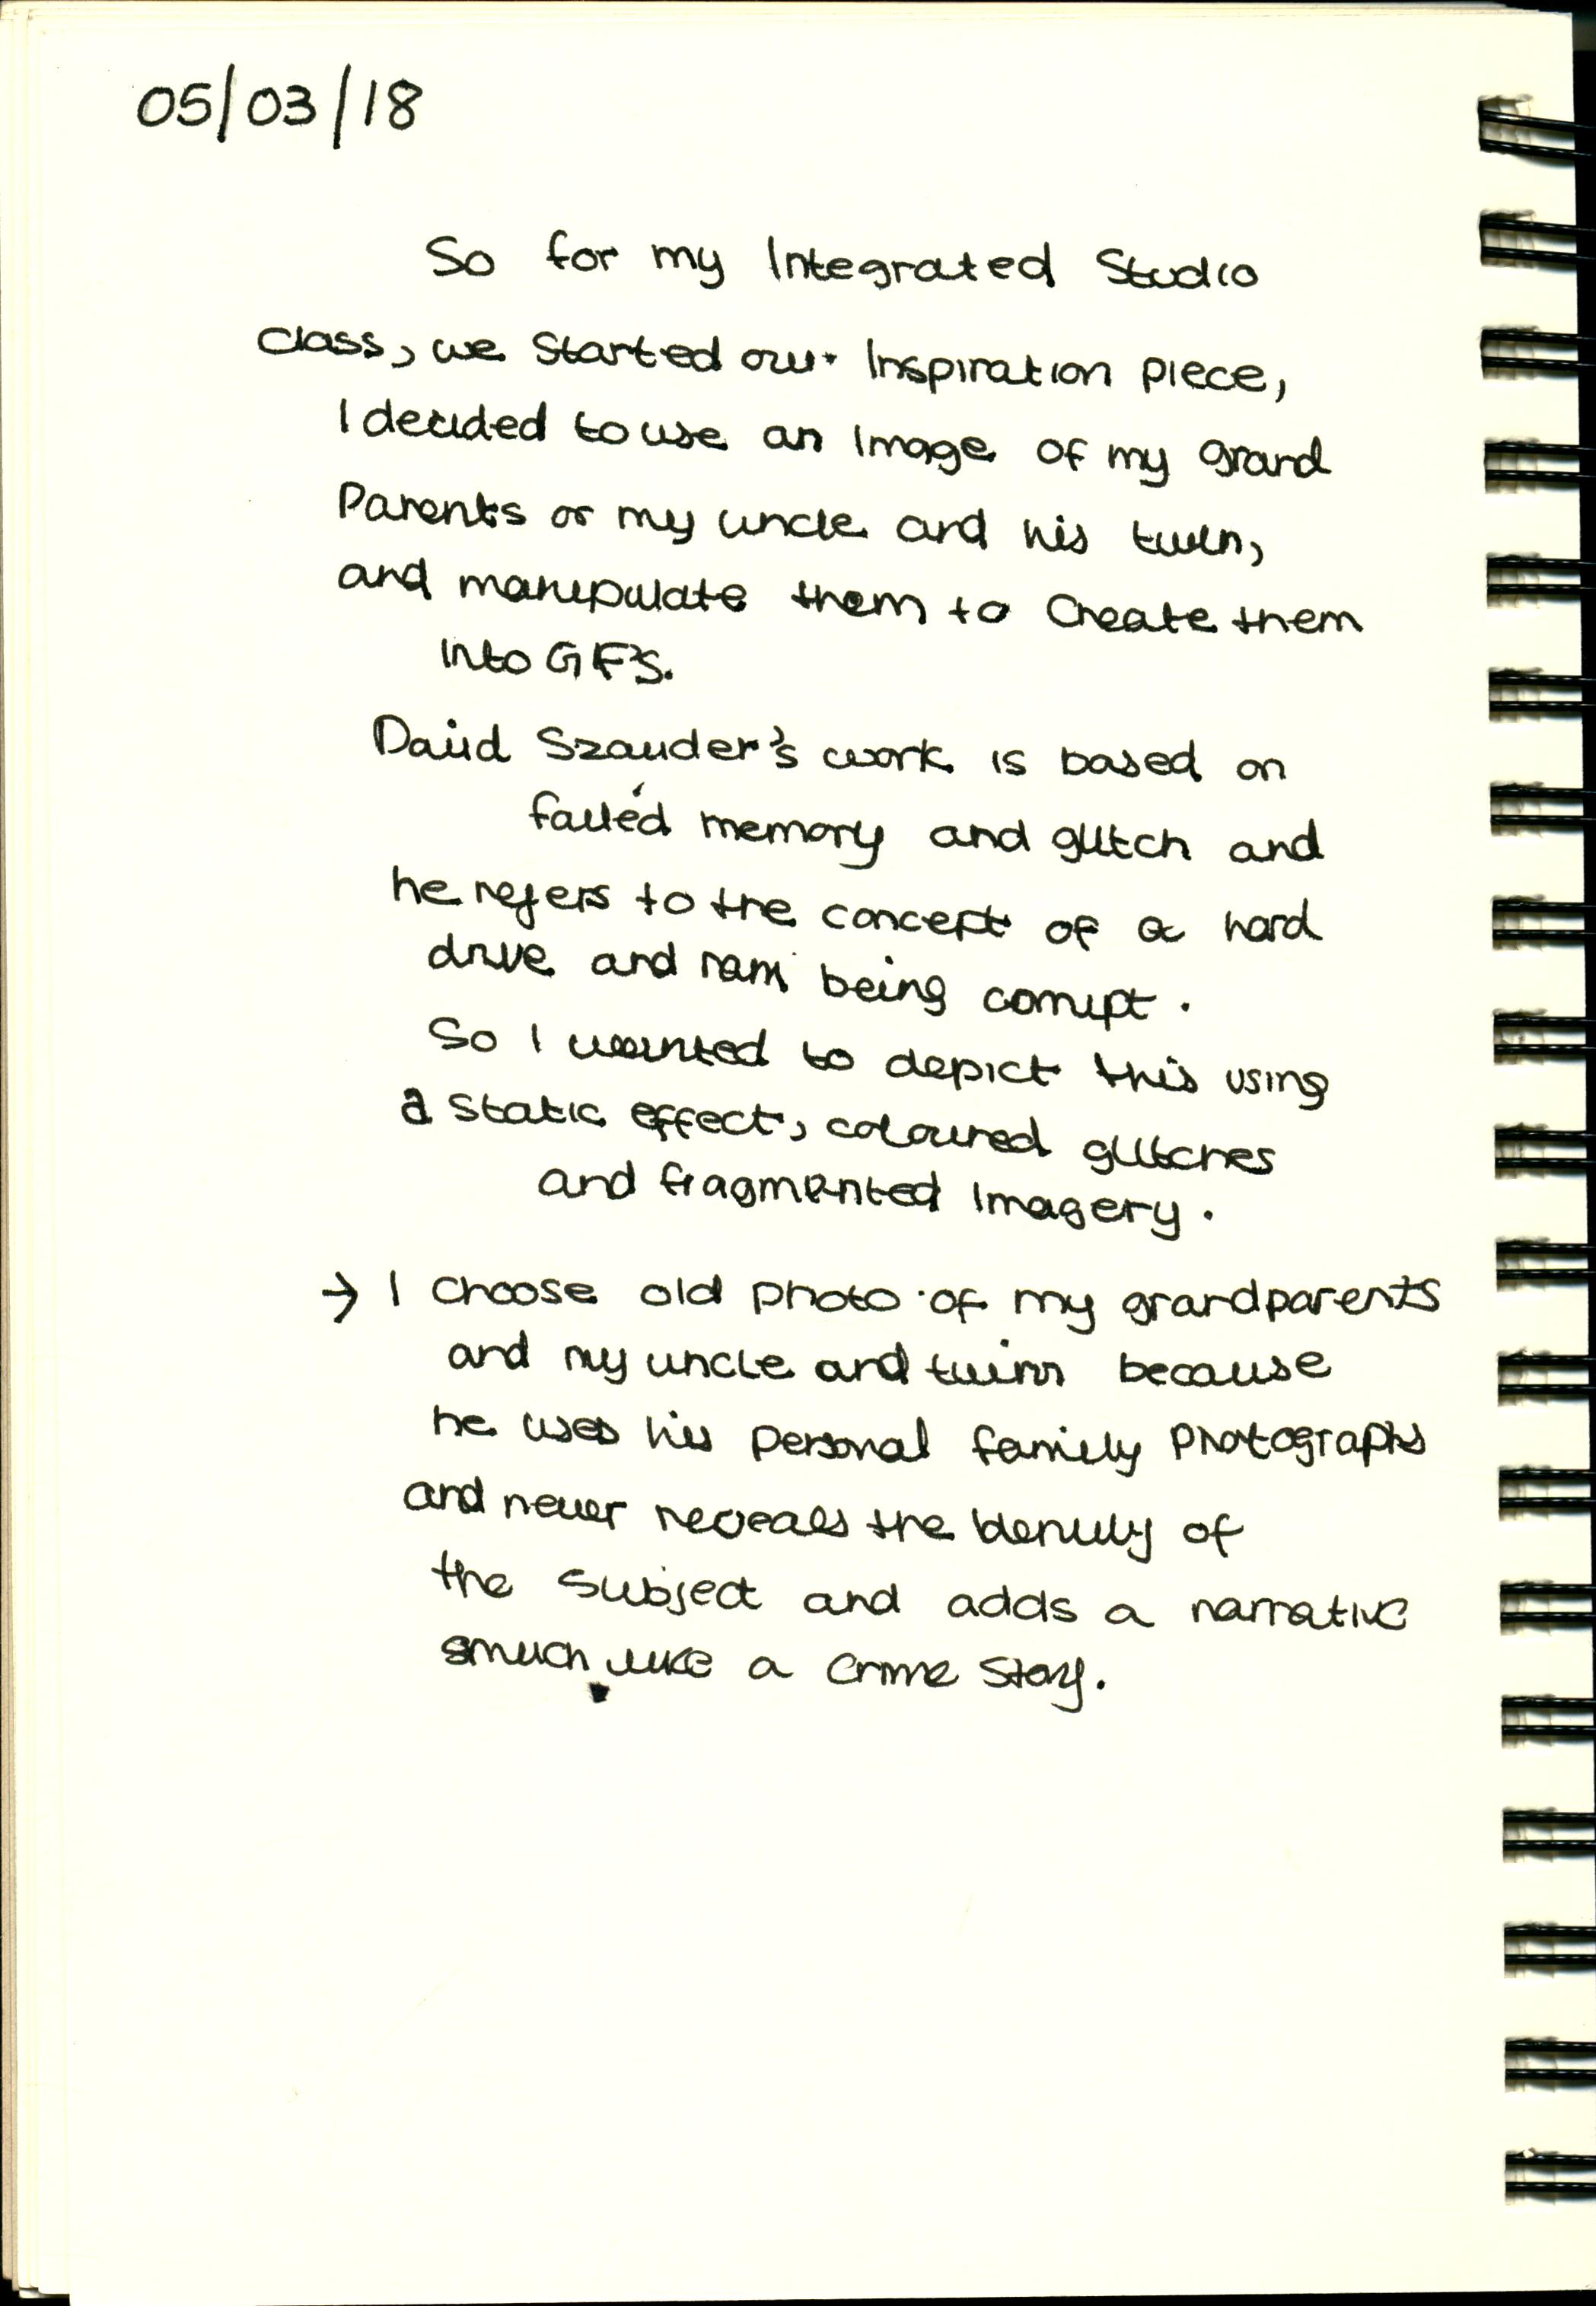 05/03/18
So for my Integrated Studio
Class, we started our Inspiration piece,
I decided to use an Image of my grand
Parents or my uncle and his twin,
and manipulate them to Create them
into GIF's.
David Szauder's work is based on
failed memory and glitch and
he refers to the concept of a hard
drive and ram being corrupt.
So I wanted to depict this using
a static effect, coloured glitches
and fragmented Imagery.
→ I choose old photo of my grandparents
and my uncle and twin because
he uses his personal family photographs
and never reveals the identity of
the subject and adds a narrative
much like a crime story.